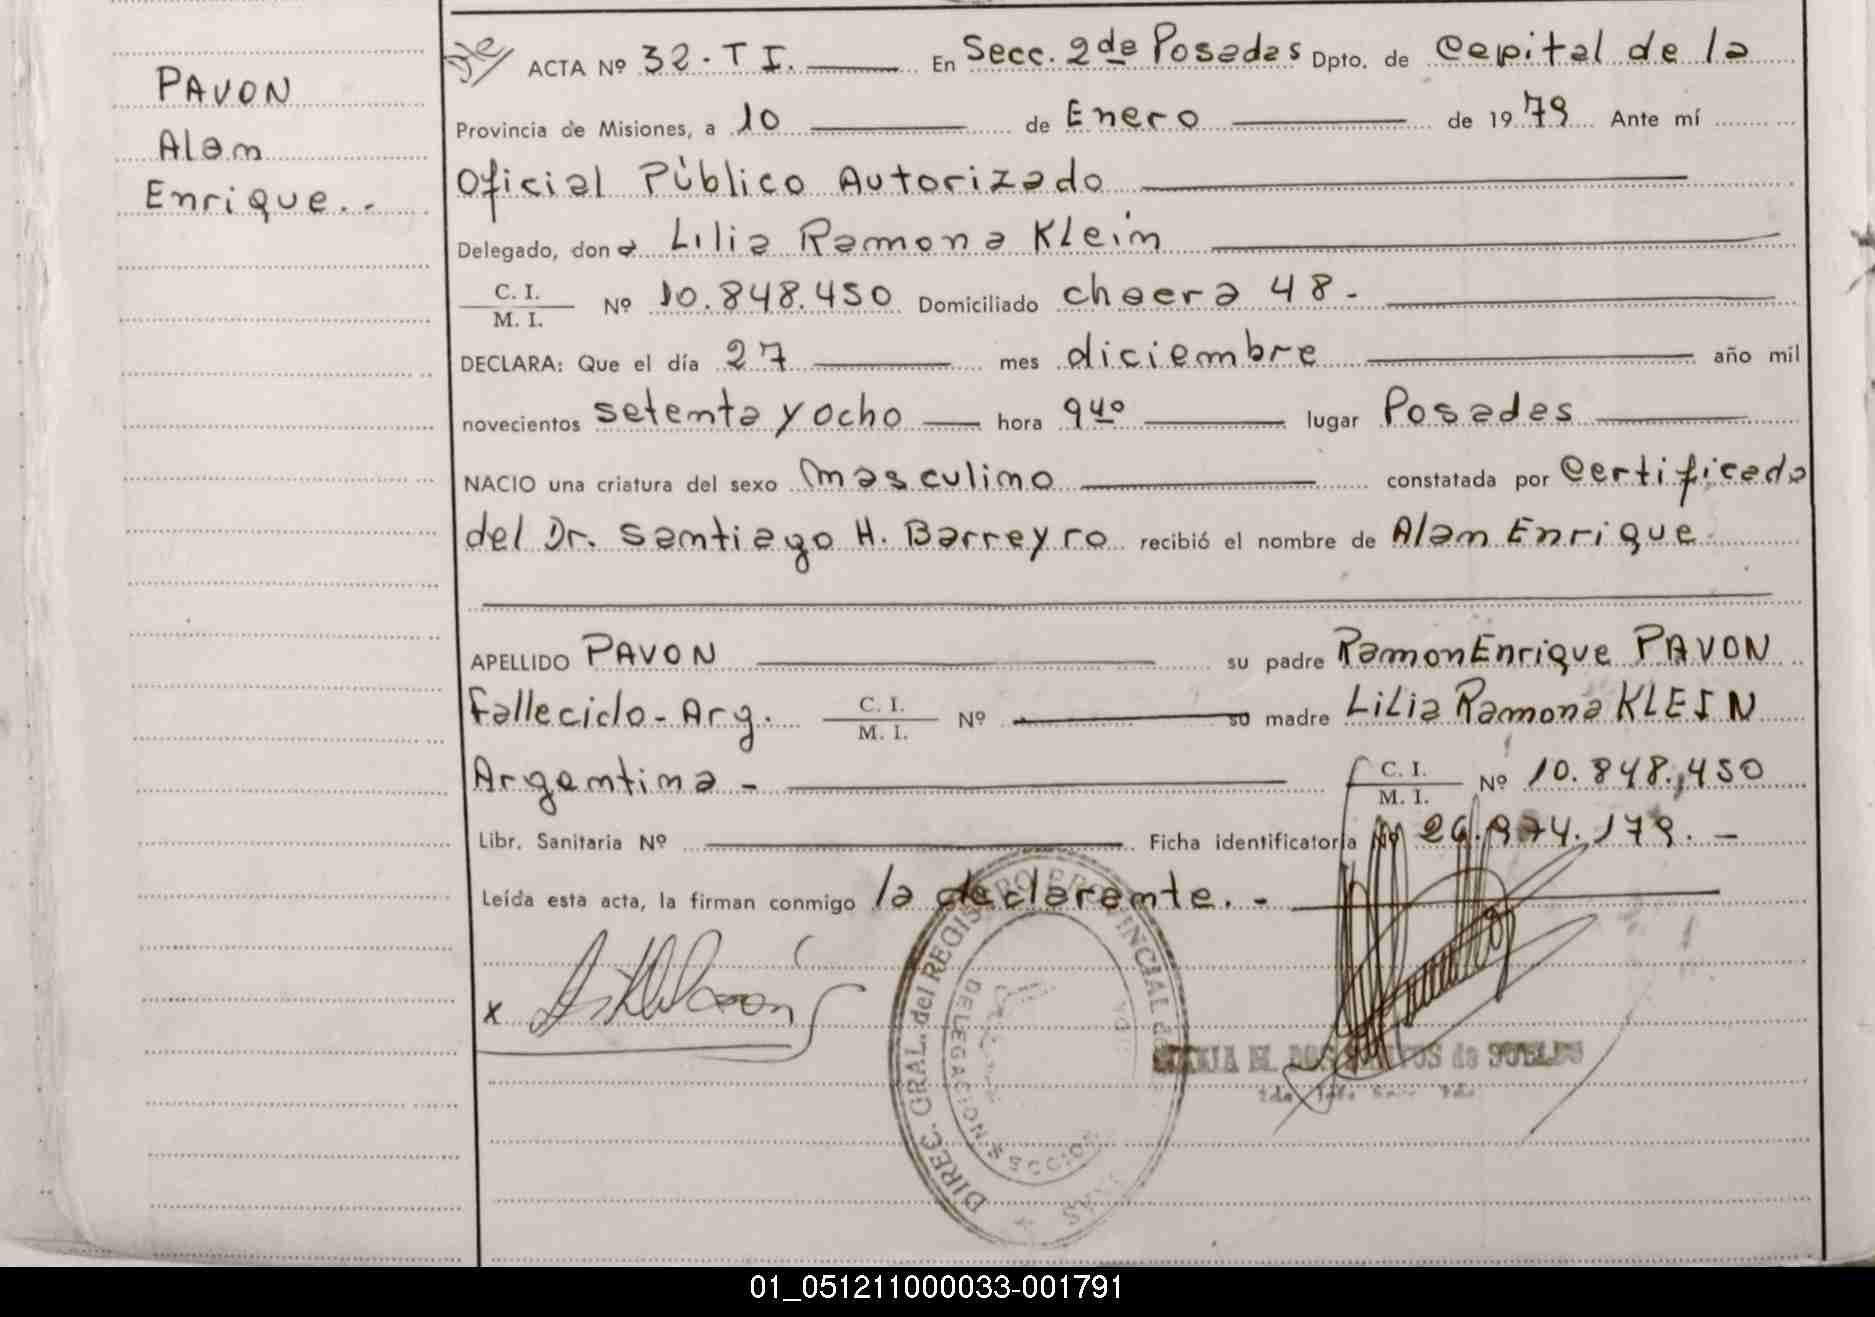 PAVON
Alan
Enrique.-
ACTA Nº 32. T I. En Secc. 2da Posadas Dpto. de Capital de la
Provincia de Misiones, a 10 de Enero de 1979 Ante mí
Oficial Público Autorizado
Delegado, don a Lilia Ramona Klein
C. I.
M. I. Nº 10.848.450 Domiciliado chacra 48-
DECLARA: Que el día 27 mes diciembre año mil
novecientos setenta y ocho hora 940 lugar Posadas
NACIO una criatura del sexo masculino constatada por Certificado
del Dr. Santiago H. Barreyro recibió el nombre de Alan Enrique
APELLIDO PAVON su padre Ramon Enrique PAVON
Fallecido-Arg. C. I. M. I. Nº su madre Lilia Ramona KLEIN
Argentina - C. I. M. I. Nº 10.848.450
Libr. Sanitaria Nº Ficha identificatoria Nº 26.974.179.-
Leída esta acta, la firman conmigo la declarante.-
x
DIREC. GRAL. del REGISTRO PROVINCIAL de
DELEGACION SECCION
01_051211000033-001791